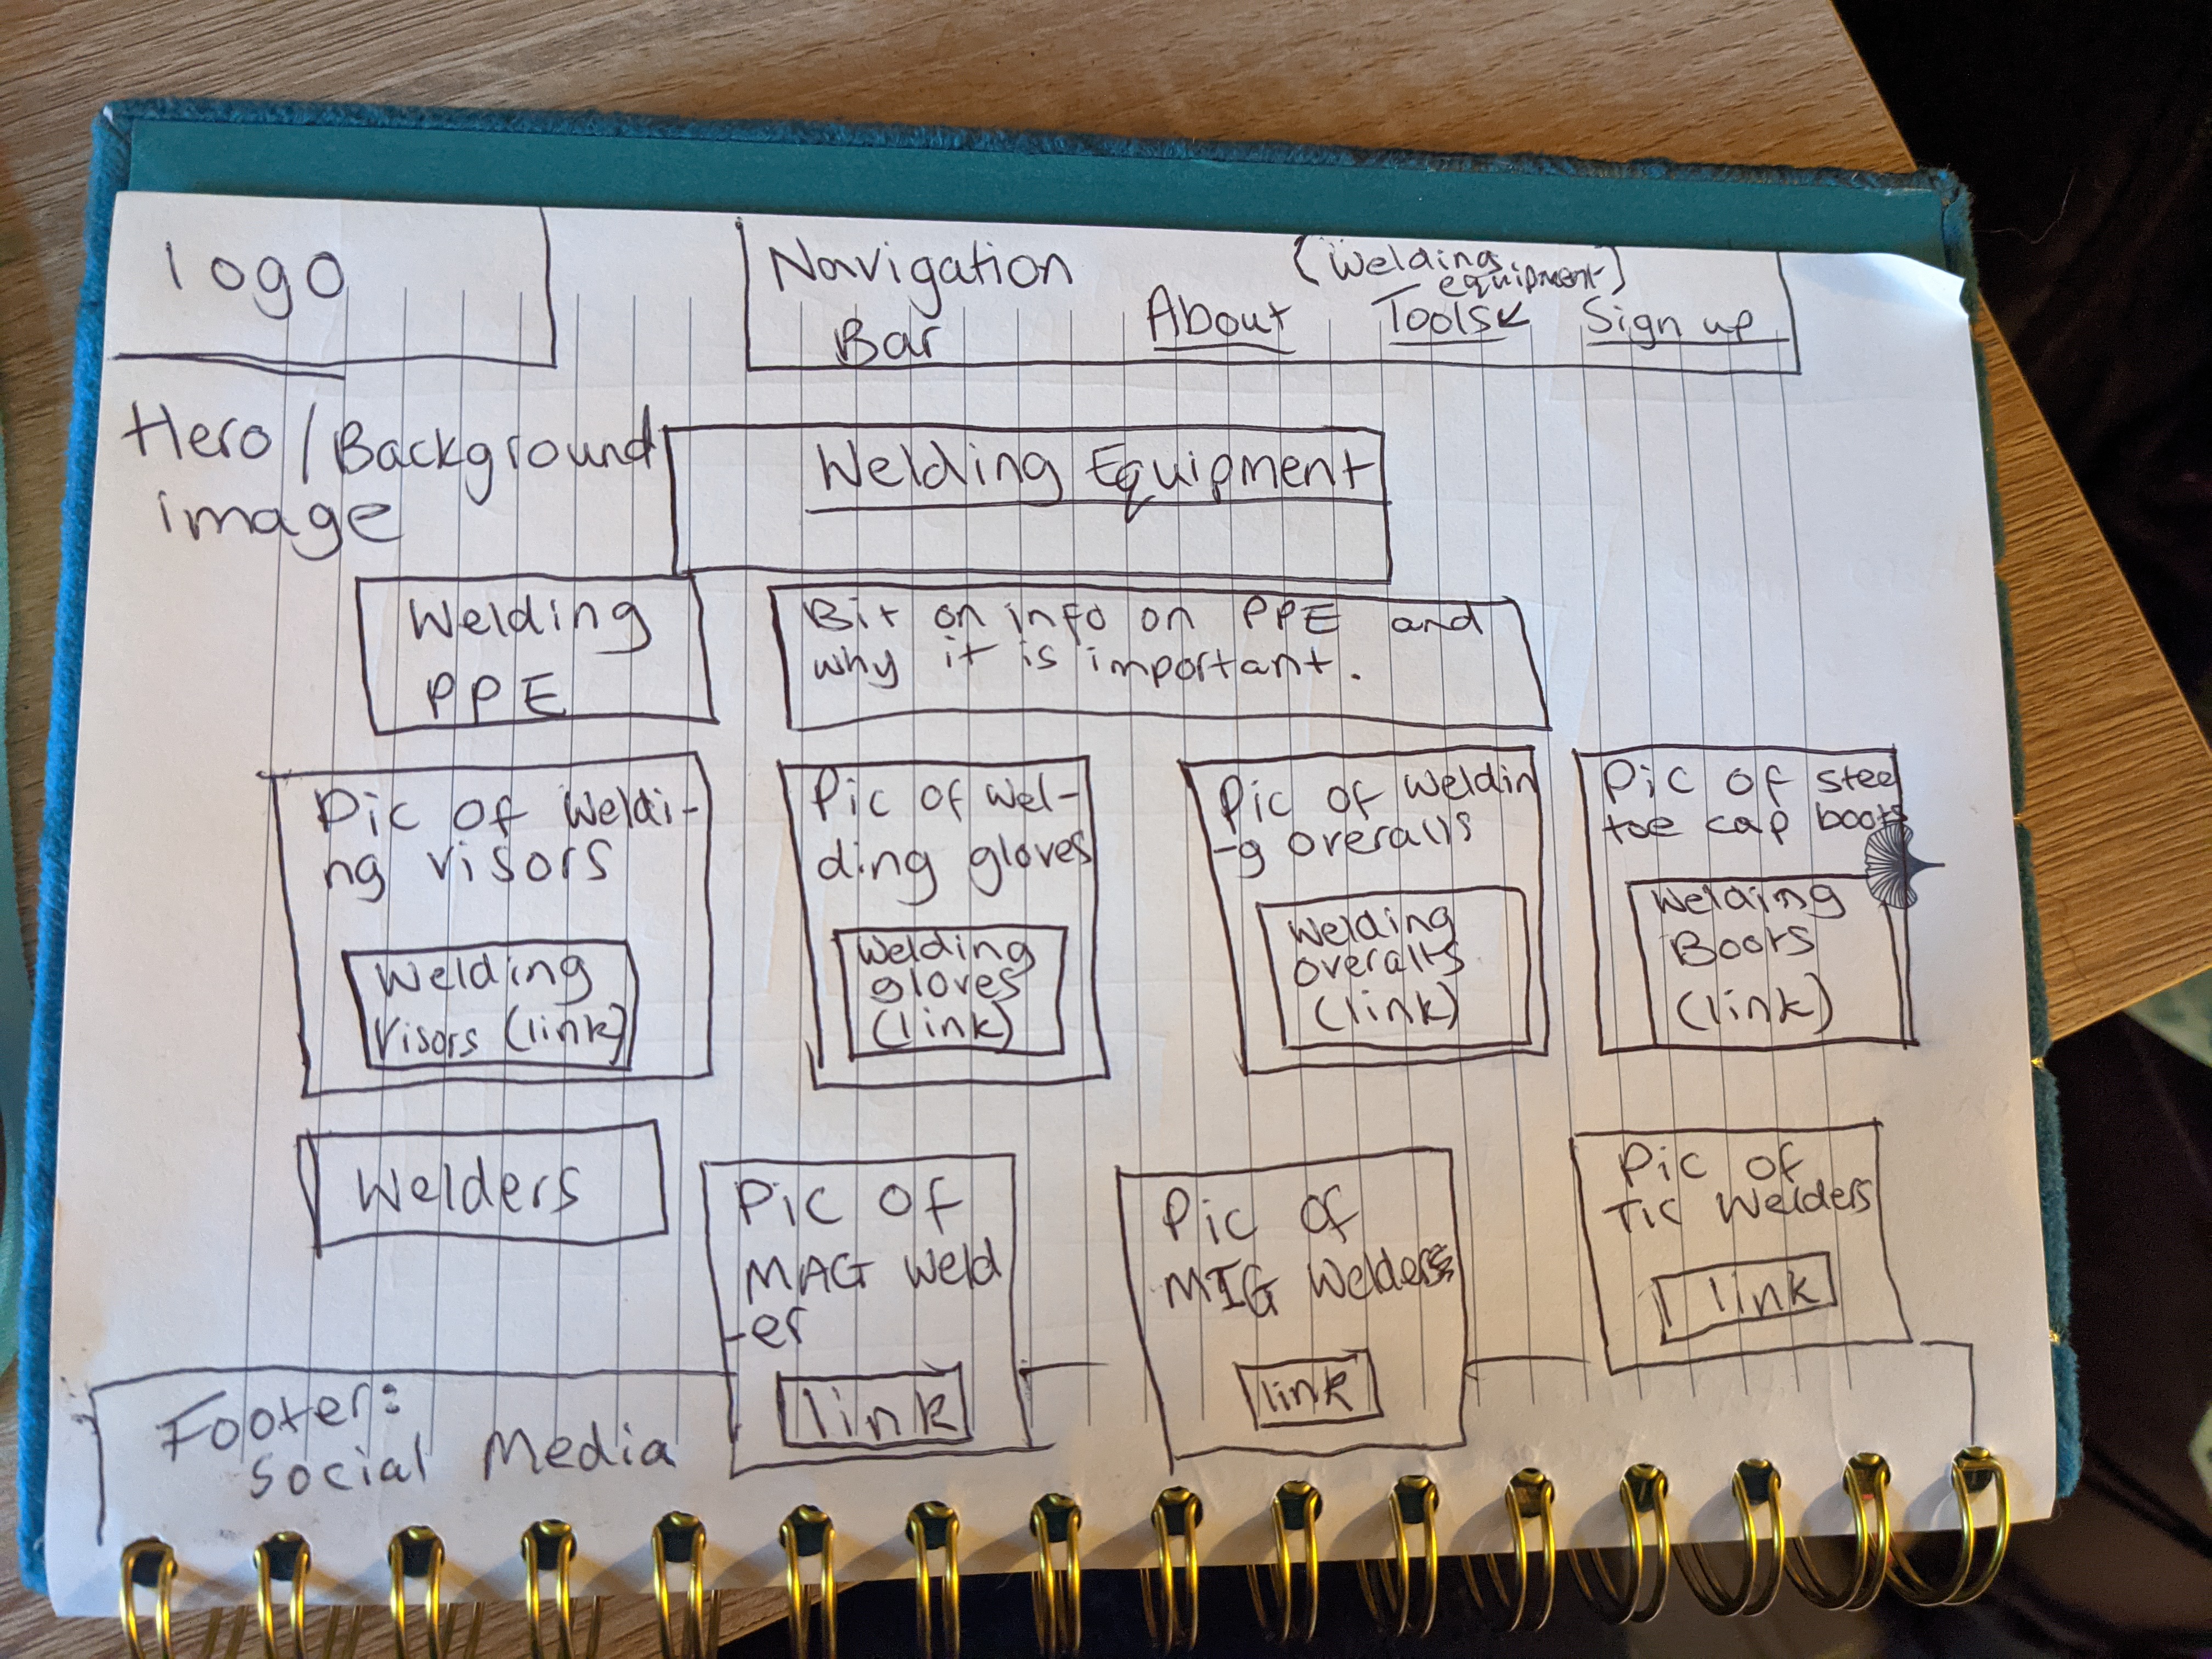 logo
Navigation
Bar
About
(Welding
equipment)
Tools
Sign up
Hero/Background
image
Welding Equipment
Welding
PPE
Bit on info on PPE and
why it is important.
Pic of Weldi-
ng visors
Welding
Visors (link)
Pic of Wel-
ding gloves
Welding
gloves
(link)
Pic of Weldin
-g overalls
Welding
overalls
(link)
Pic of steel
toe cap boots
Welding
Boots
(link)
Welders
Pic of
MAG Weld
-er
link
Pic of
MIG Welders
link
Pic of
TIC Welders
link
Footer:
Social Media